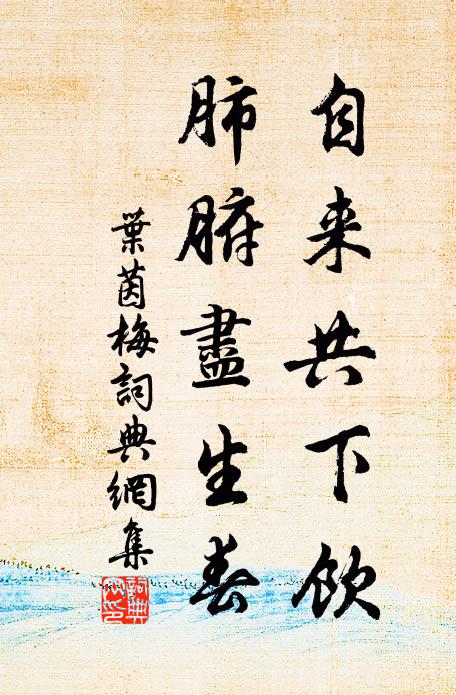 自来共下飲
肺腑盡生春
葉茵梅詞典網集